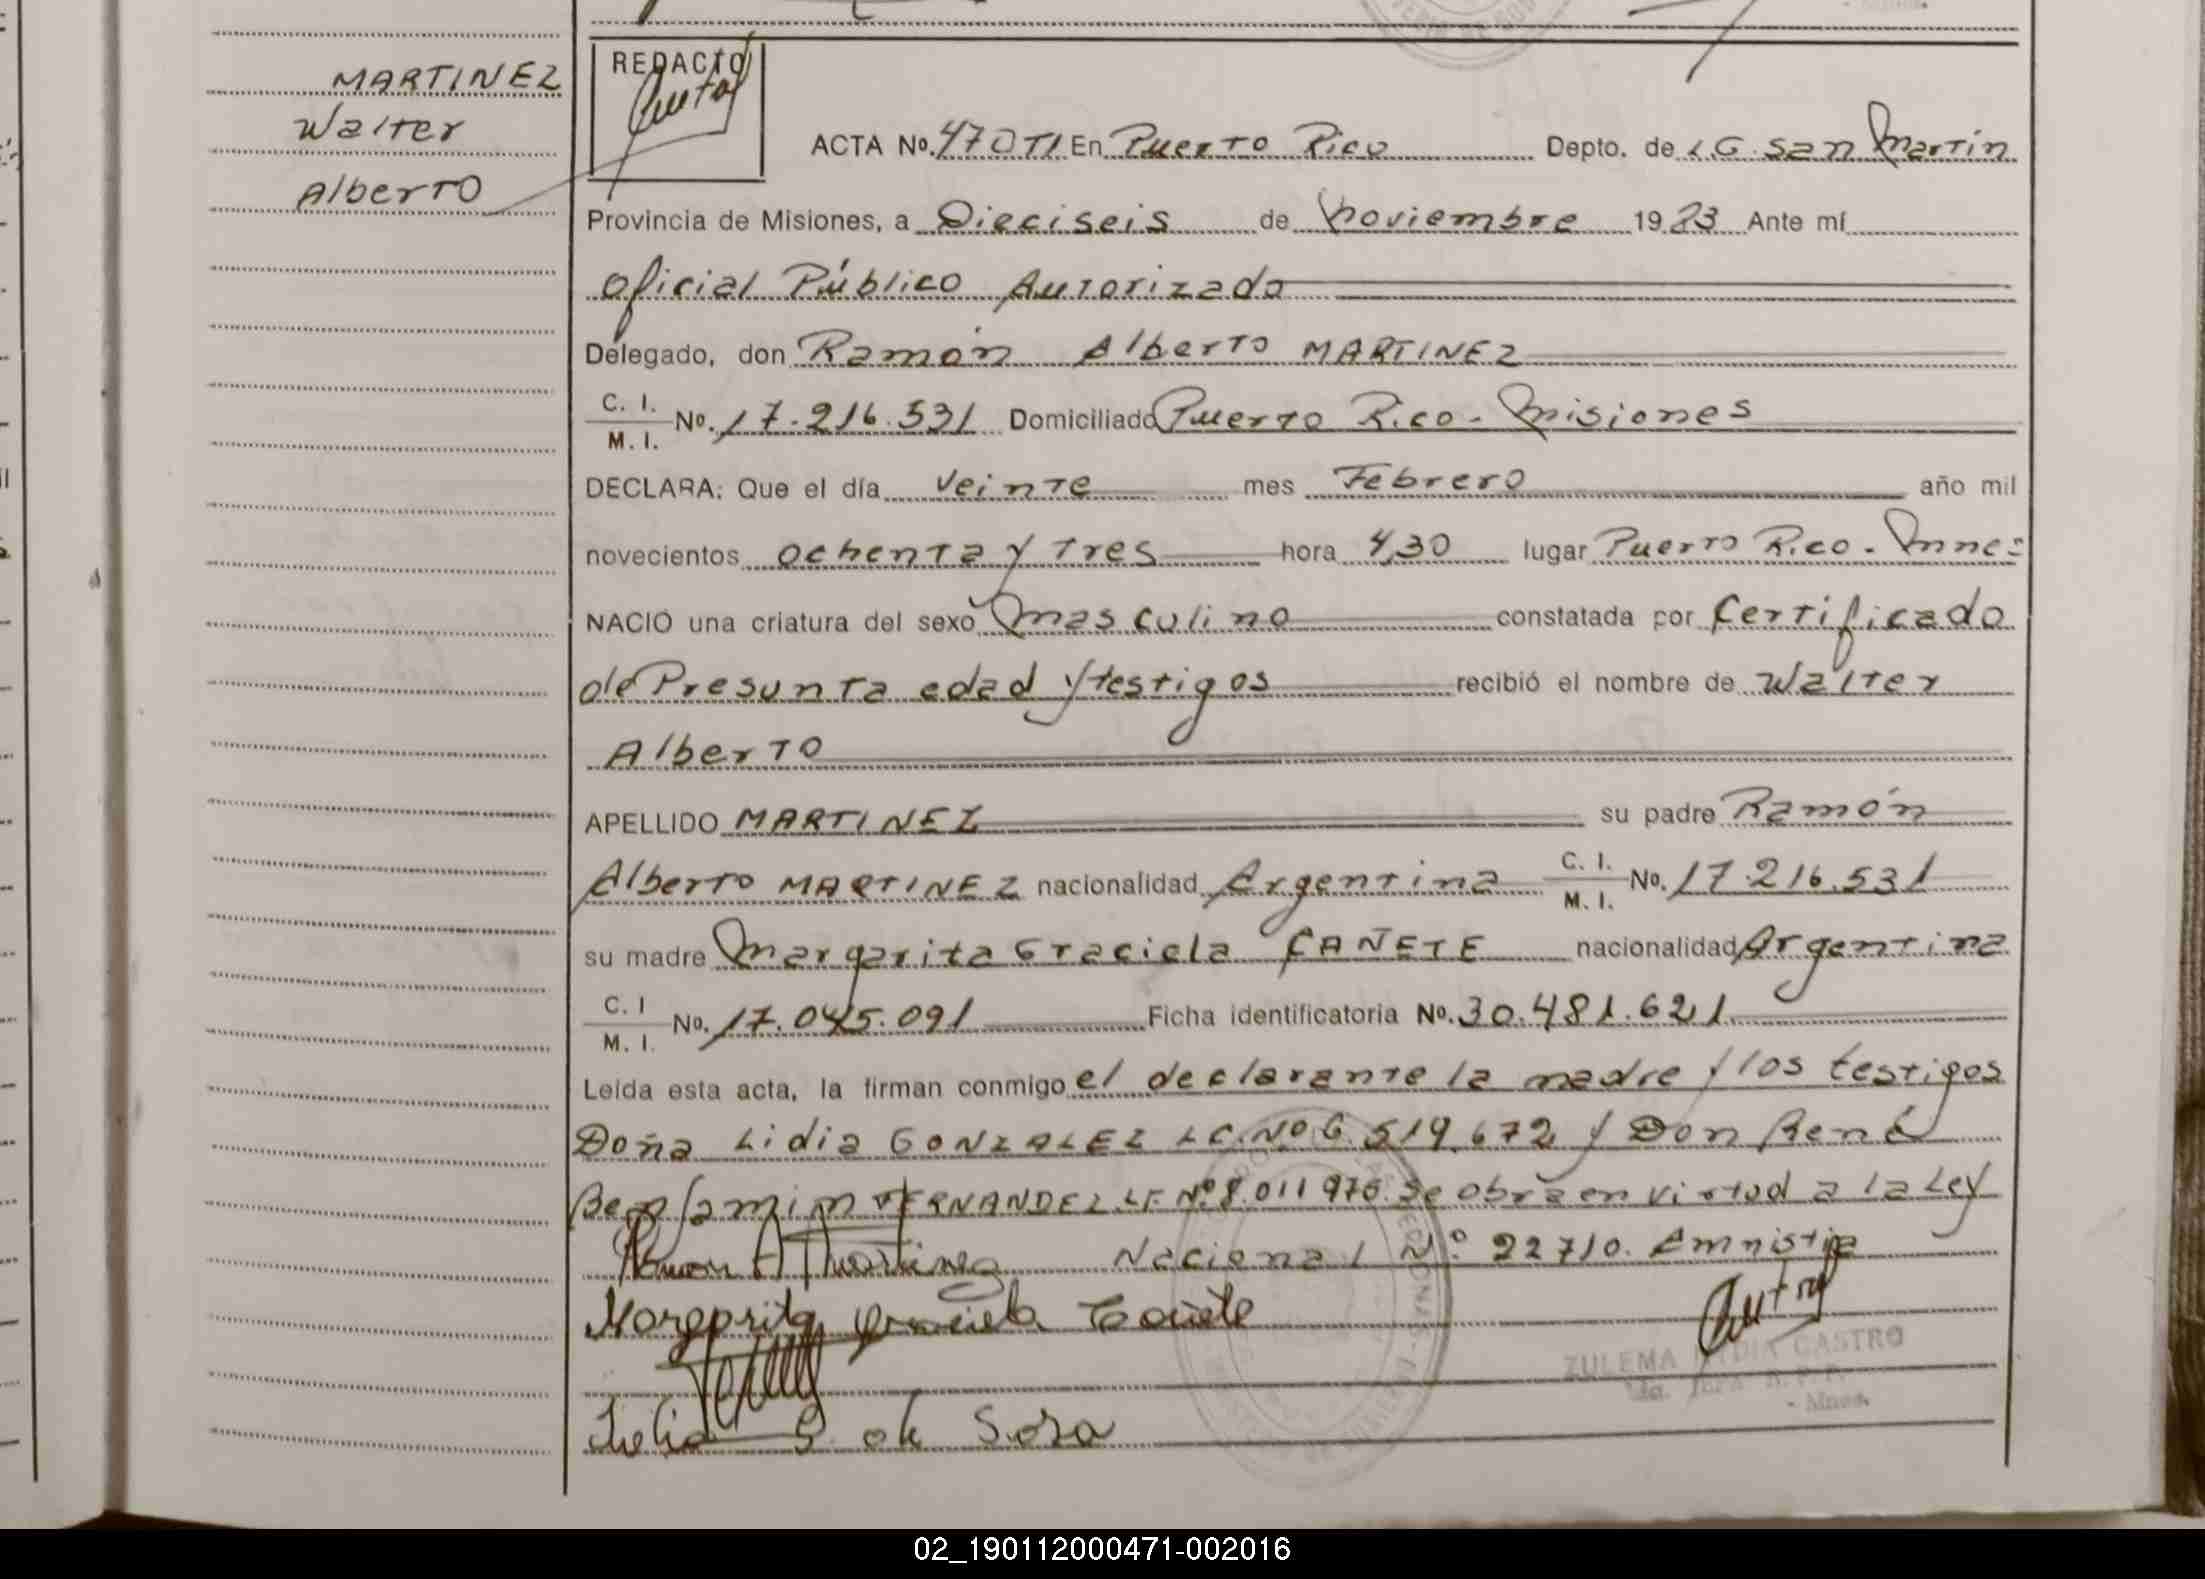 MARTINEZ
Walter
Alberto
REDACTO
ACTA No. 470 TI En Puerto Rico Depto. de L.G. San Martín
Provincia de Misiones, a Dieciseis de noviembre 1983 Ante mí
Oficial Público Autorizado
Delegado, don Ramón Alberto MARTINEZ
C. I. / M. I. No. 17.216.531 Domiciliado Puerto Rico - Misiones
DECLARA: Que el día veinte mes Febrero año mil
novecientos ochenta y tres hora 4,30 lugar Puerto Rico - Mnes
NACIO una criatura del sexo masculino constatada por Certificado
de Presunta edad y testigos recibió el nombre de Walter
Alberto
APELLIDO MARTINEZ su padre Ramón
Alberto MARTINEZ nacionalidad Argentina C. I. / M. I. No. 17.216.531
su madre Margarita Graciela CAÑETE nacionalidad Argentina
C. I / M. I. No. 17.045.091 Ficha identificatoria No. 30.481.621
Leída esta acta, la firman conmigo el declarante la madre y los testigos
Doña Lidia GONZALEZ LC. Nº 6.519.672 y Don René
Benjamin FERNANDEZ LE. Nº 8.011976. Se obra en virtud a la Ley
Nacional Nº 22710. Amnistia
Margarita Graciela Cañete
ZULEMA LYDIA CASTRO
- Mnes.
G. de Sosa
02_190112000471-002016